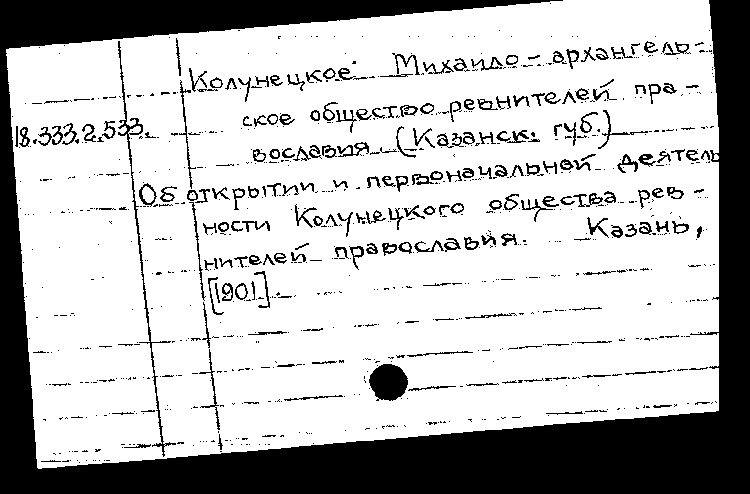 Колунецкое Михаило-архангель-
18.333.2.533. ское общество ревнителей пра-
вославия. (Казанск. губ.)
Об открытии и первоначальной деятель
ности Колунецкого общества рев-
нителей православия. Казань,
[1901].